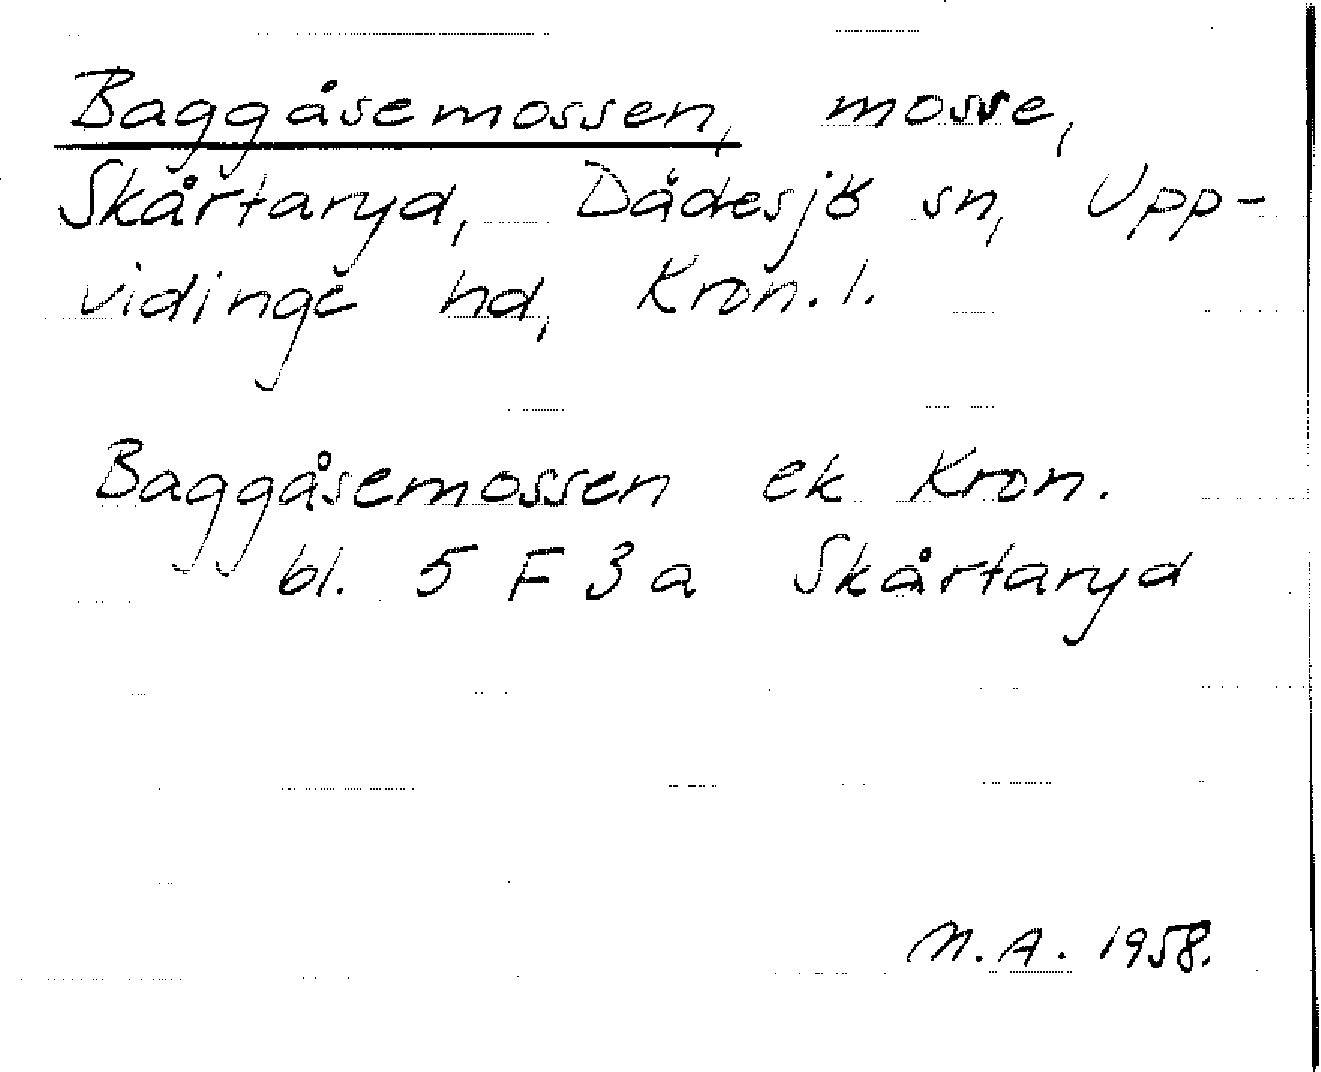 Baggåsemossen, mosse,
Skårtaryd, Dädesjö sn, Upp-
vidinge hd, Kron. l.
Baggåsemossen ek Kron.
bl. 5 F 3 a Skårtaryd
M. A. 1958.